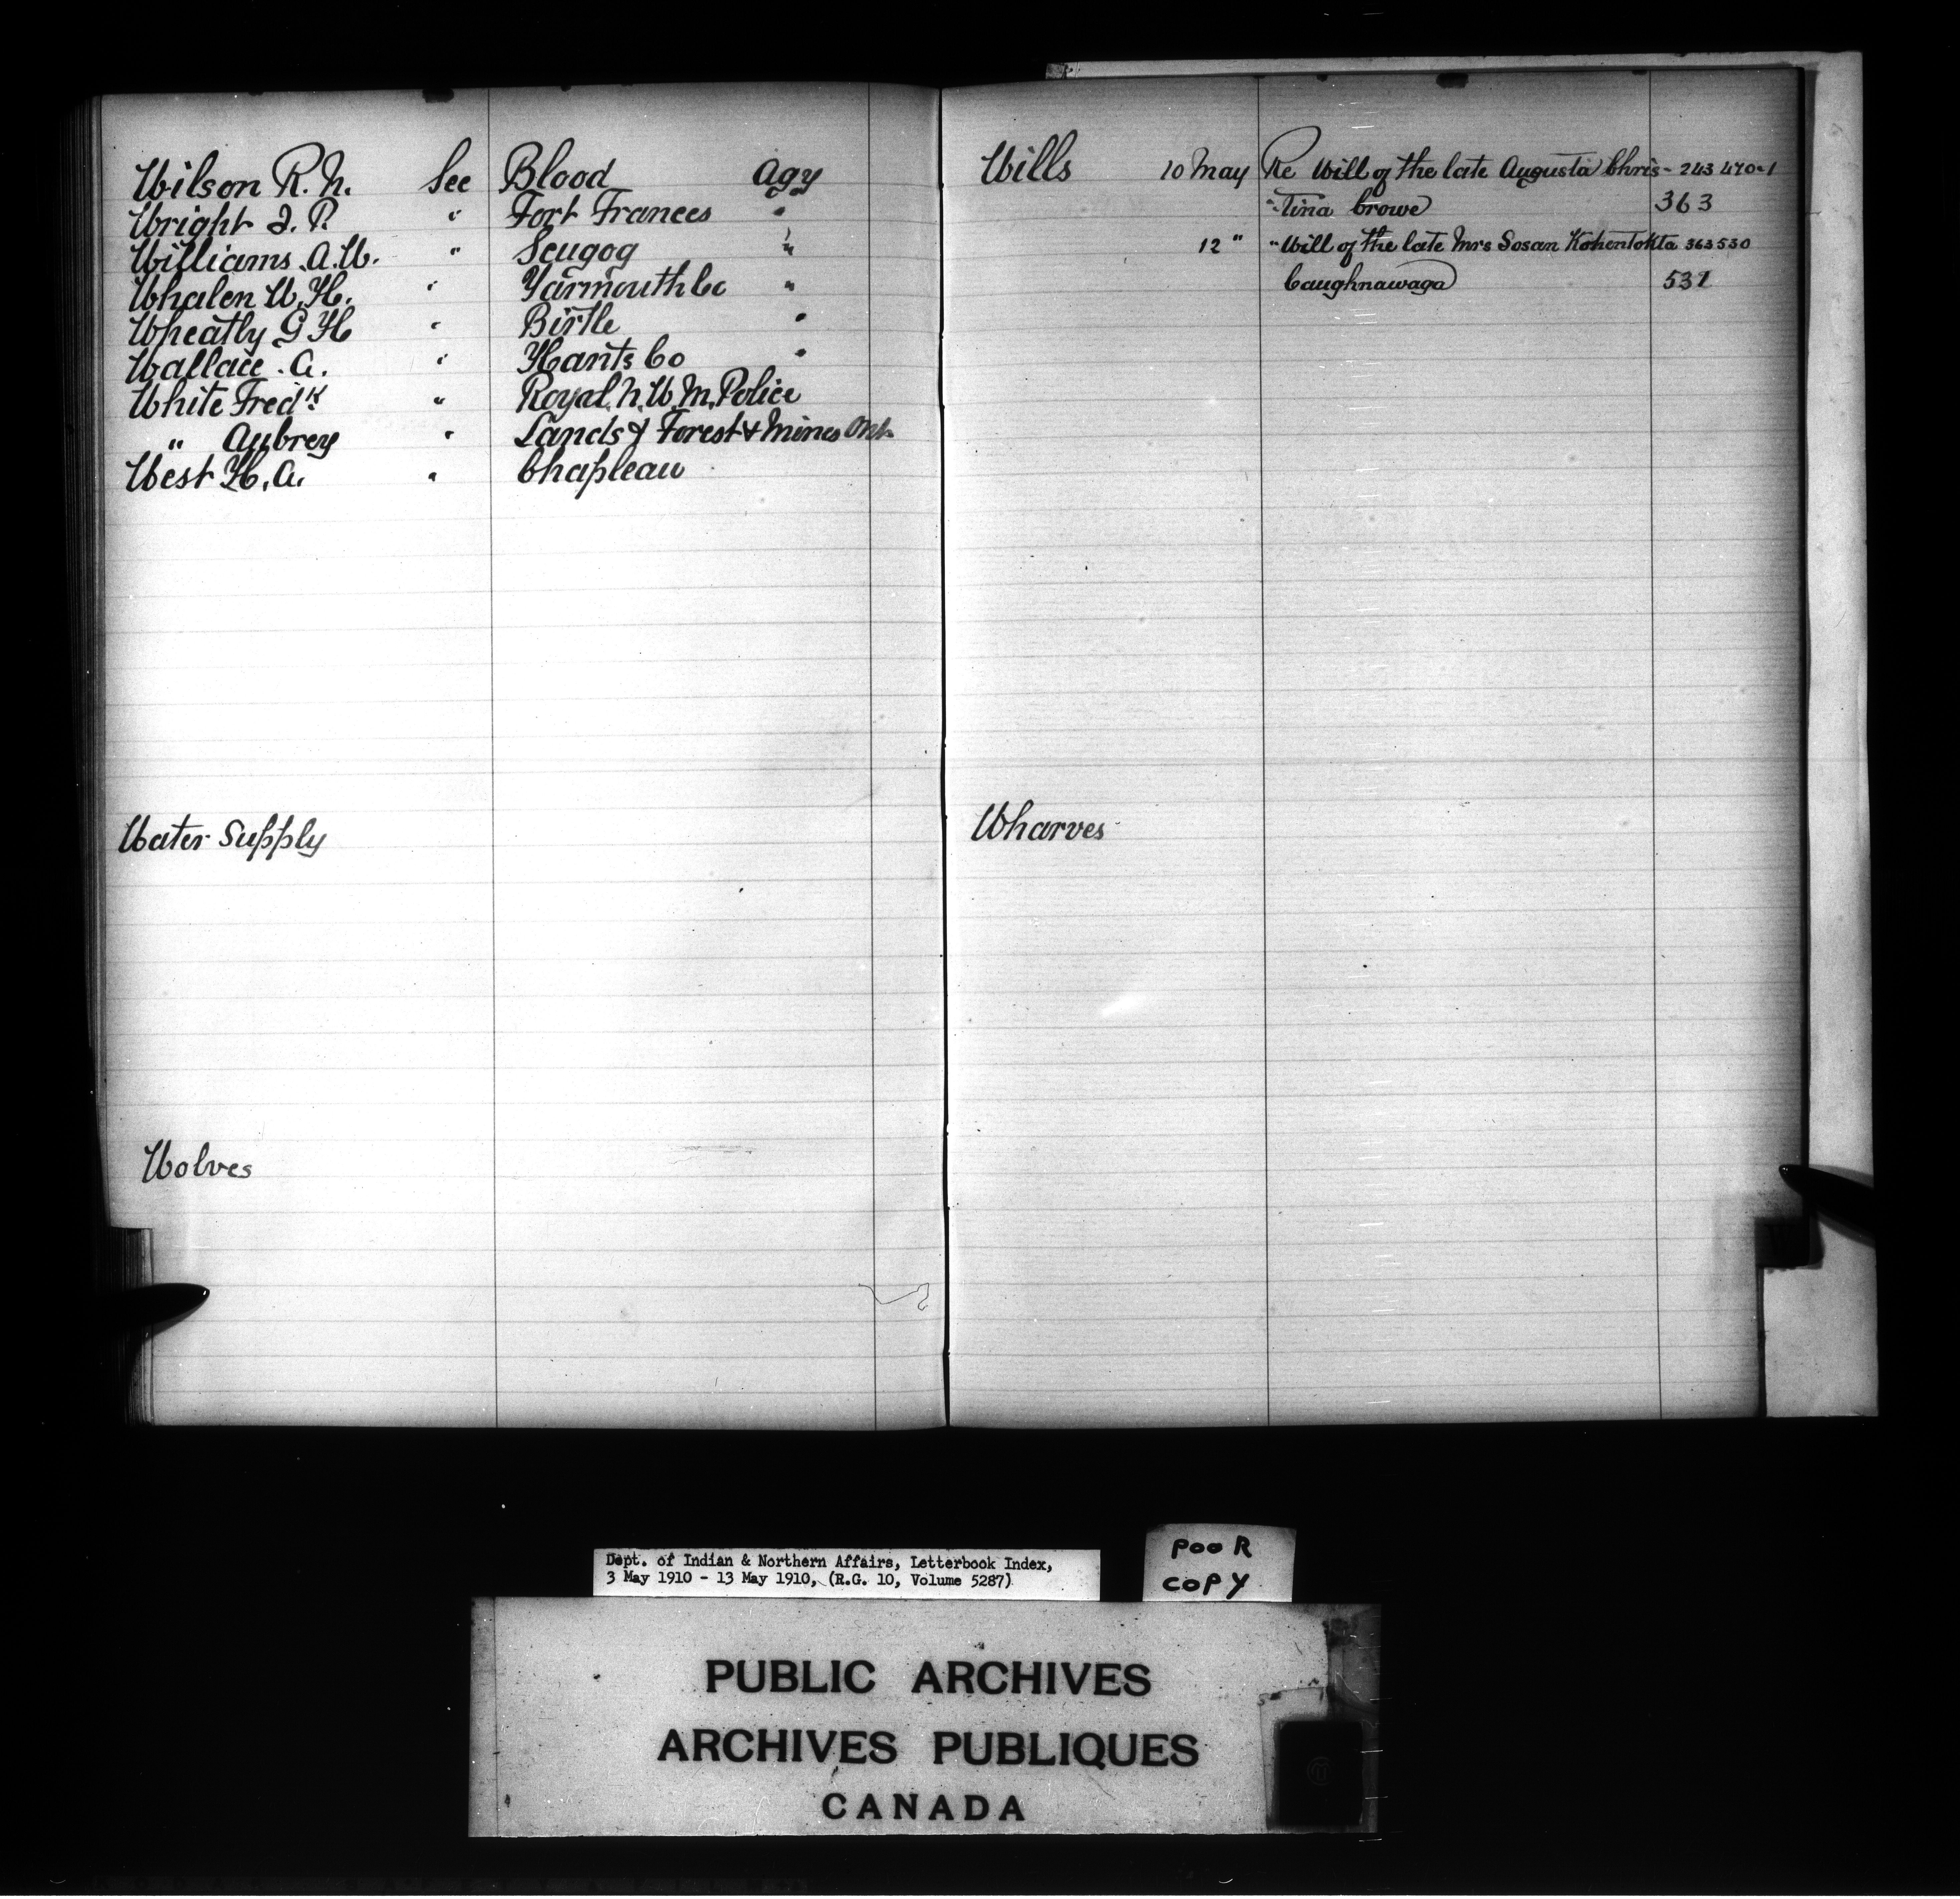 Wilson R. N. See Blood Agy
Wright J. P. " Fort Frances "
Williams A. W. " Scugog "
Whalen W. H. " Yarmouth Co "
Wheatly G H " Birtle "
Wallace . A. " Hants Co "
White Fredk. " Royal N. W. M. Police
" Aubrey " Lands & Forest & Mines Ont
West H. A. " Chapleau
Water Supply
Wolves
Wills 10 May Re Will of the late Augusta Chris- 243 470-1
"-tina Crowe 363
12 " " Will of the late Mrs Sosan Kohentokta 363 530
Caughnawaga 531
Wharves
Dept. of Indian & Northern Affairs, Letterbook Index,
3 May 1910 - 13 May 1910, (R.G. 10, Volume 5287)
POOR
COPY
PUBLIC ARCHIVES
ARCHIVES PUBLIQUES
CANADA